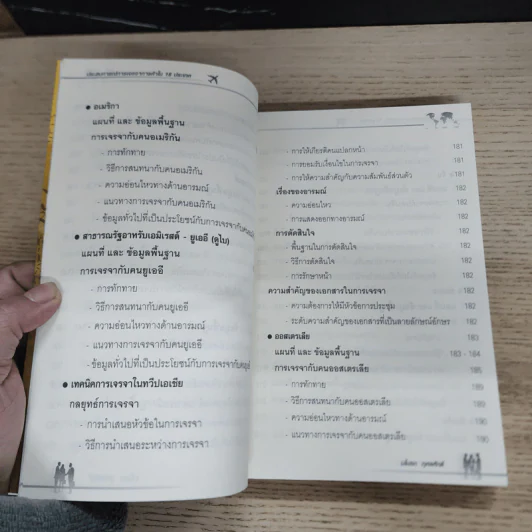 ประเทศ
• อเมริกา
แผนที่ และ ข้อมูลพื้นฐาน
การเจรจากับคนอเมริกัน
- การทักทาย
- วิธีการสนทนากับคนอเมริกัน
- ความอ่อนไหวทางด้านอารมณ์
- แนวทางการเจรจากับคนอเมริกัน
- ข้อมูลทั่วไปที่เป็นประโยชน์กับการเจรจากับคน
• สาธารณรัฐอาหรับเอมิเรสต์ - ยูเออี (ดูไบ)
แผนที่ และ ข้อมูลพื้นฐาน
การเจรจากับคนยูเออี
- การทักทาย
- วิธีการสนทนากับคนยูเออี
- ความอ่อนไหวทางด้านอารมณ์
- แนวทางการเจรจากับคนยูเออี
- ข้อมูลทั่วไปที่เป็นประโยชน์กับการเจรจากับคน
• เทคนิคการเจรจาในทวีปเอเชีย
กลยุทธ์การเจรจา
- การนำเสนอหัวข้อในการเจรจา
- วิธีการนำเสนอระหว่างการเจรจา
- การให้เกียรติคนแปลกหน้า 181
- การยอมรับเงื่อนไขในการเจรจา 181
- การให้ความสำคัญกับความสัมพันธ์ส่วนตัว 181
เรื่องของอารมณ์ 182
- ความอ่อนไหว 182
- การแสดงออกทางอารมณ์ 182
การตัดสินใจ 182
- พื้นฐานในการตัดสินใจ 182
- วิธีการตัดสินใจ 182
- การรักษาหน้า 182
ความสำคัญของเอกสารในการเจรจา 182
- ความต้องการให้มีหัวข้อการประชุม 182
- ระดับความสำคัญของเอกสารที่เป็นลายลักษณ์อักษร 182
• ออสเตรเลีย 183
แผนที่ และ ข้อมูลพื้นฐาน 183 - 184
การเจรจากับคนออสเตรเลีย 185
- การทักทาย 185
- วิธีการสนทนากับคนออสเตรเลีย 189
- ความอ่อนไหวทางด้านอารมณ์ 189
- แนวทางการเจรจากับคนออสเตรเลีย 190